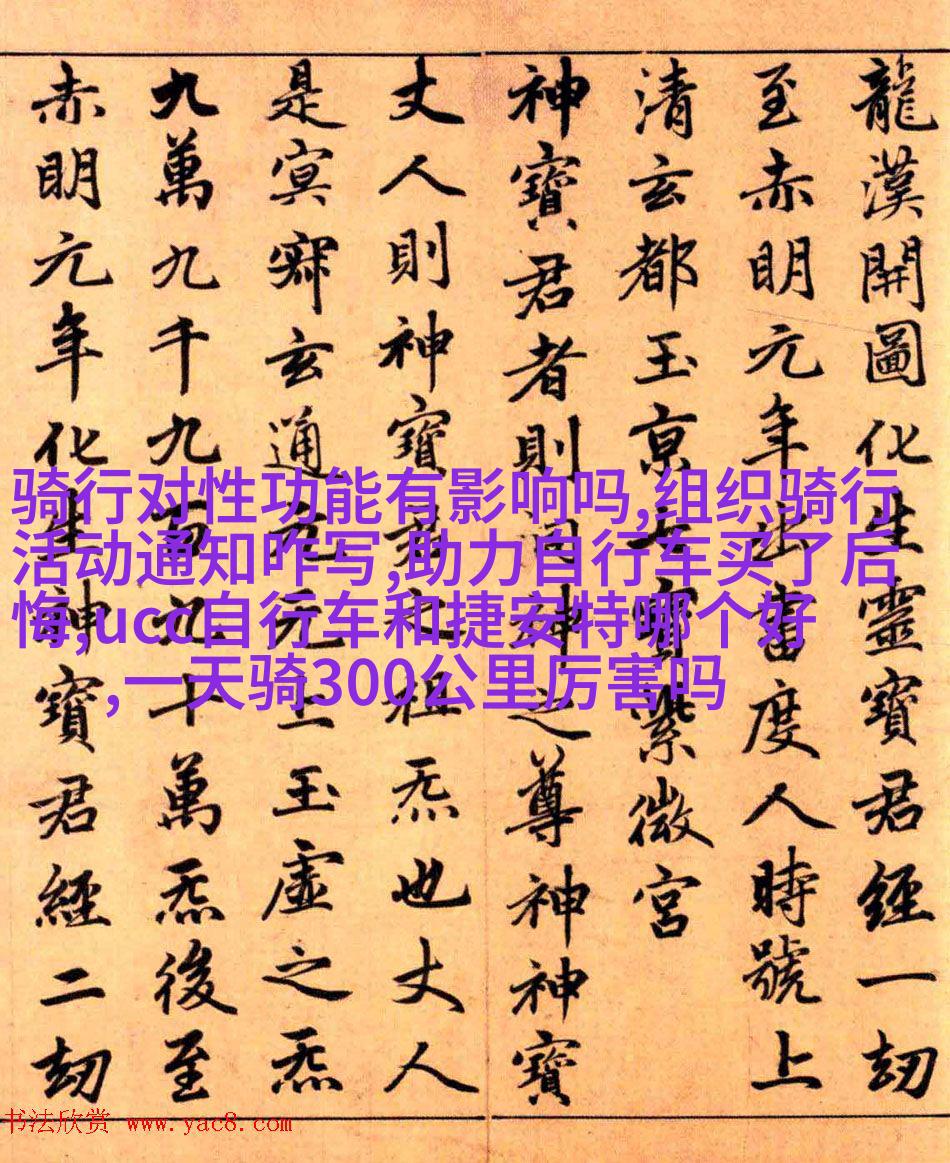 龍漢開圖化生靈寶君經一劫
至赤明元年出書度人時號上
清玄都玉京七寶紫微宮
神寶君者則洞神之尊神神寶
丈人則神寶君之祖炁也丈人
是冥寂玄通元无上玉虛之炁
九萬九千九百九十萬炁後至
赤明元年化生神寶君經二劫
骑行对性功能有影响吗,组织骑行
活动通知咋写,助力自行车买了后
悔,ucc自行车和捷安特哪个好
,一天骑300公里厉害吗
书法欣赏 www.yac8.com